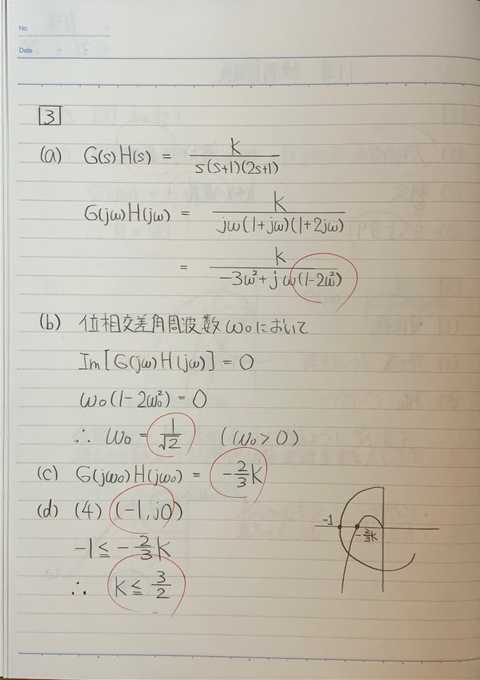 No.
Date
3
(a) G(s)H(s) = k / s(s+1)(2s+1)
G(jω)H(jω) = k / jω(1+jω)(1+2jω)
= k / -3ω²+jω(1-2ω²)
(b) 位相交差角周波数ω₀において
Im[G(jω)H(jω)]=0
ω₀(1-2ω₀²)=0
∴ ω₀ = 1/√2 (ω₀>0)
(c) G(jω₀)H(jω₀) = -2/3 k
(d) (4) (-1, j0)
-1 ≦ -2/3 k
∴ k ≦ 3/2
-1
-2/3 k